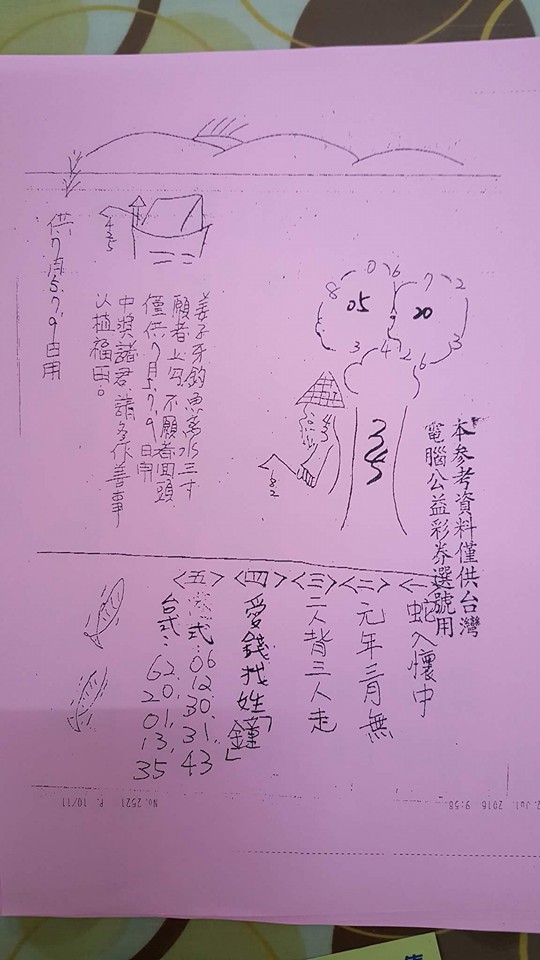 本參考資料僅供台灣
電腦公益彩券選號用
<一>蛇入懷中
<二>元年三月無
<三>二人背三人走
<四>愛錢找姓「鐘」
<五>
式:06 12. 30. 31. 43
台式:62. 20. 01. 13. 35
0 6 7 2
8 05 20
3 4 2 6 3
345
182
姜子牙釣魚离水三寸
願者上勾不願者回頭
僅供7月5.7.9日用
中獎諸君請多作善事
以植福田。
425
供7月5.7.9日用
2. Jul. 2016 9:58 No. 2521 P. 10/11